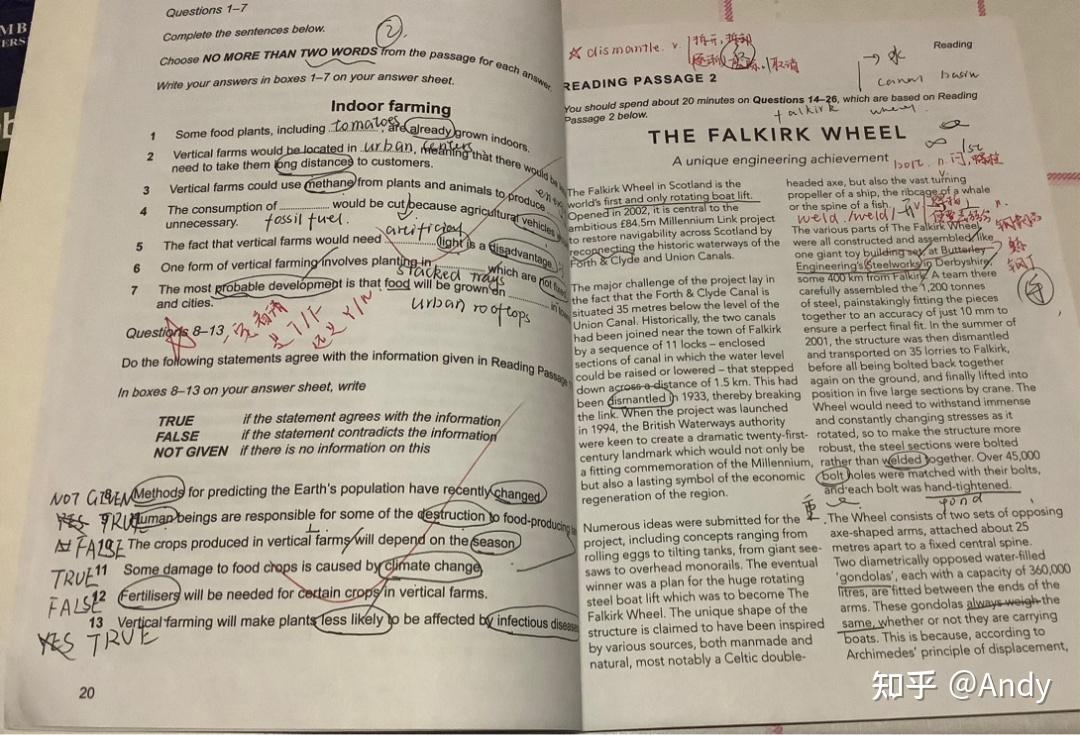 Questions 1–7
Complete the sentences below.
②
Choose NO MORE THAN TWO WORDS from the passage for each answer.
Write your answers in boxes 1–7 on your answer sheet.
Indoor farming
1 Some food plants, including tomatoes, are already grown indoors.
2 Vertical farms would be located in urban centers, meaning that there would be
need to take them long distances to customers.
3 Vertical farms could use methane from plants and animals to produce
4 The consumption of would be cut because agricultural vehicles
unnecessary. fossil fuel.
artificial
5 The fact that vertical farms would need light is a disadvantage
6 One form of vertical farming involves planting in which are not fixed
stacked trays
7 The most probable development is that food will be grown on
and cities. urban rooftops
Questions 8–13
看清
是T/F
还是Y/N
Do the following statements agree with the information given in Reading Passage
In boxes 8–13 on your answer sheet, write
TRUE if the statement agrees with the information
FALSE if the statement contradicts the information
NOT GIVEN if there is no information on this
NOT GIVEN Methods for predicting the Earth's population have recently changed
YES TRUE Human beings are responsible for some of the destruction to food-producing
FALSE The crops produced in vertical farms will depend on the season
TRUE 11 Some damage to food crops is caused by climate change
FALSE 12 Fertilisers will be needed for certain crops in vertical farms.
13 Vertical farming will make plants less likely to be affected by infectious diseases
YES TRUE
20
☆ dismantle. v. 拆开,
取消
→ 水
canal basin
Reading
READING PASSAGE 2
You should spend about 20 minutes on Questions 14–26, which are based on Reading
Passage 2 below.
falkirk
THE FALKIRK WHEEL
A unique engineering achievement
The Falkirk Wheel in Scotland is the
world's first and only rotating boat lift.
Opened in 2002, it is central to the
ambitious £84.5m Millennium Link project
to restore navigability across Scotland by
reconnecting the historic waterways of the
Forth & Clyde and Union Canals.
The major challenge of the project lay in
the fact that the Forth & Clyde Canal is
situated 35 metres below the level of the
Union Canal. Historically, the two canals
had been joined near the town of Falkirk
by a sequence of 11 locks – enclosed
sections of canal in which the water level
could be raised or lowered – that stepped
down across a distance of 1.5 km. This had
been dismantled in 1933, thereby breaking
the link. When the project was launched
in 1994, the British Waterways authority
were keen to create a dramatic twenty-first-
century landmark which would not only be
a fitting commemoration of the Millennium,
but also a lasting symbol of the economic
regeneration of the region.
Numerous ideas were submitted for the
project, including concepts ranging from
rolling eggs to tilting tanks, from giant see-
saws to overhead monorails. The eventual
winner was a plan for the huge rotating
steel boat lift which was to become The
Falkirk Wheel. The unique shape of the
structure is claimed to have been inspired
by various sources, both manmade and
natural, most notably a Celtic double-
headed axe, but also the vast turning
propeller of a ship, the ribcage of a whale
or the spine of a fish.
weld /weld/
The various parts of The Falkirk Wheel
were all constructed and assembled, like
one giant toy building set, at Butterley
Engineering's Steelworks in Derbyshire,
some 400 km from Falkirk. A team there
carefully assembled the 1,200 tonnes
of steel, painstakingly fitting the pieces
together to an accuracy of just 10 mm to
ensure a perfect final fit. In the summer of
2001, the structure was then dismantled
and transported on 35 lorries to Falkirk,
before all being bolted back together
again on the ground, and finally lifted into
position in five large sections by crane. The
Wheel would need to withstand immense
and constantly changing stresses as it
rotated, so to make the structure more
robust, the steel sections were bolted
rather than welded together. Over 45,000
bolt holes were matched with their bolts,
and each bolt was hand-tightened.
The Wheel consists of two sets of opposing
axe-shaped arms, attached about 25
metres apart to a fixed central spine.
Two diametrically opposed water-filled
'gondolas', each with a capacity of 360,000
litres, are fitted between the ends of the
arms. These gondolas always weigh the
same, whether or not they are carrying
boats. This is because, according to
Archimedes' principle of displacement,
知乎 @Andy